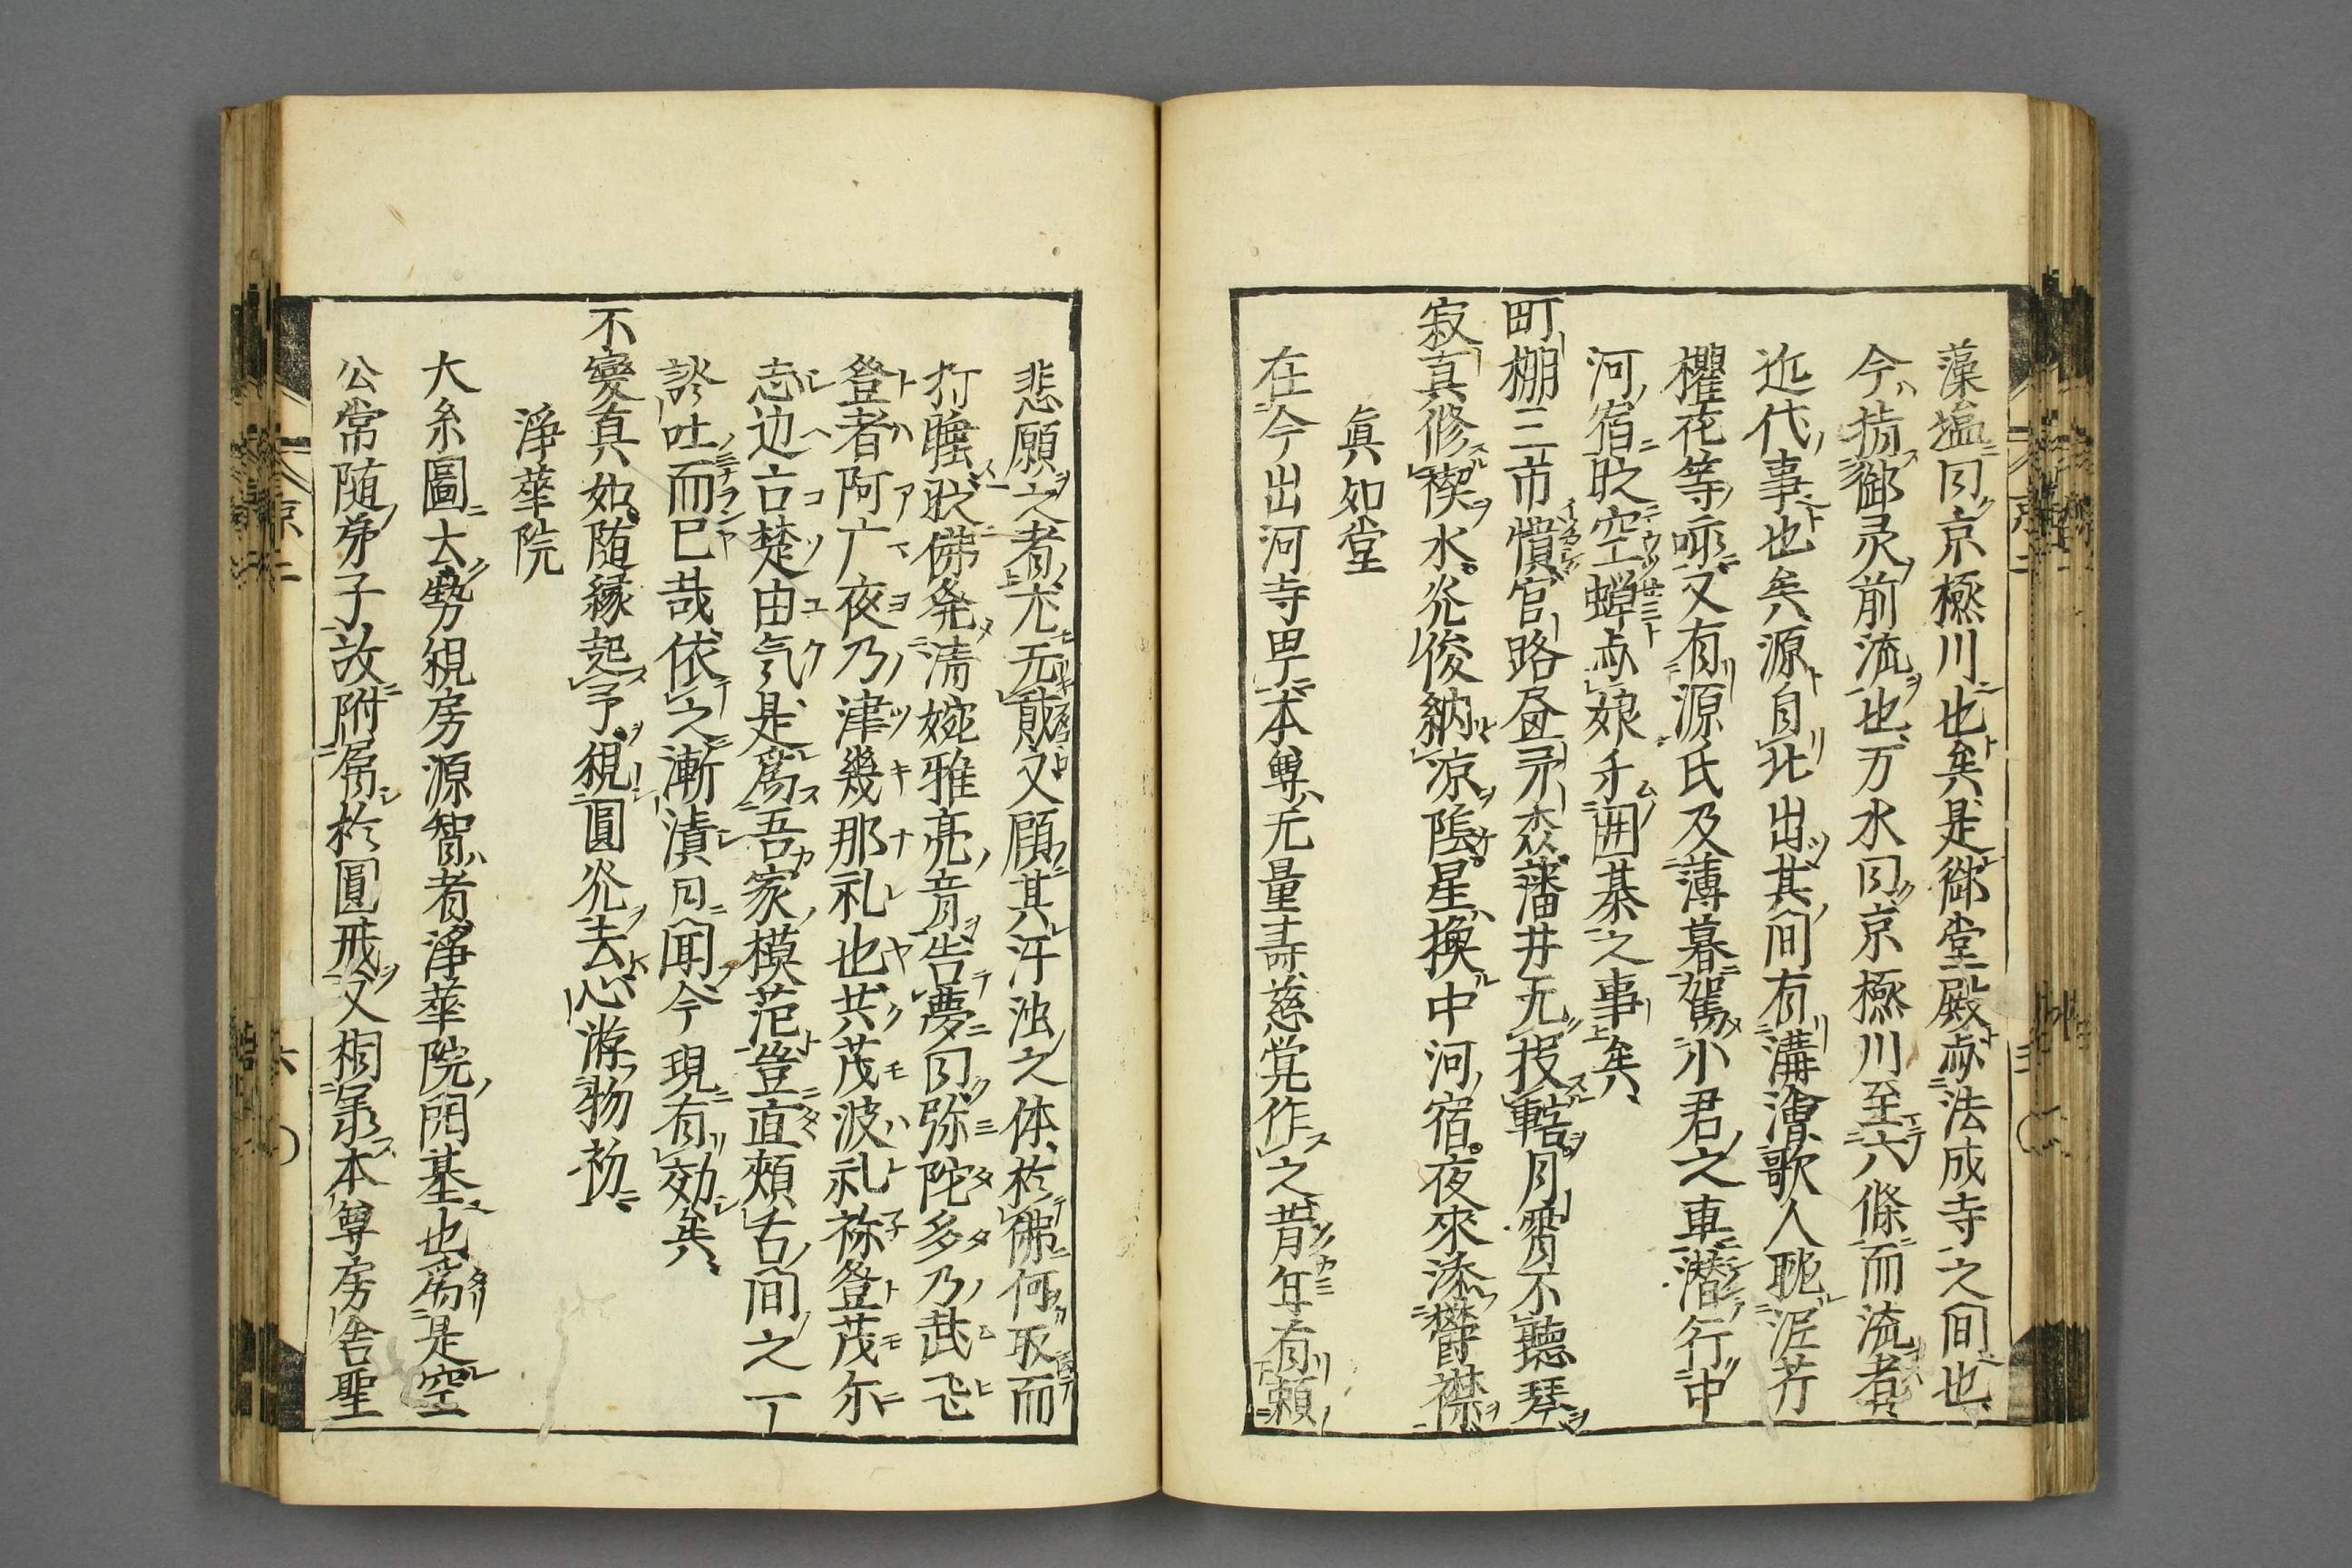 藻塩曰京極川也矣是御堂殿亦法成寺之間也
今指御灵前流也万水曰京極川至六條而流者
近代事也矣源自北出其間有溝瀹歌人耽泥芹
櫂花等咏又有源氏及薄暮駕小君之車潜行中
河宿昵空蟬亦娘子囲棊之事矣
町棚三市憤官路昼尋森藩井无投轄月宵不聽琴
寂真修禊水炎俊納凉陰星換中河宿夜來添欝襟
真如堂
在今出河寺町本尊无量壽慈覚作之昔年有頼
悲願之者尤无戯又顧其汗浊之体於佛何取而
打睡狀佛発清婉雅亮音告夢曰弥陀多乃武飞
登者阿广夜乃津幾那礼也共茂波礼祢登茂尓
志边古楚由気是為吾家模范豈直頰舌間之一
謬吐而已哉依之漸漬日聞今現有効矣
不變真如随縁起予親圓炎去心游物初
淨華院
大糸圖大勢親房源智者淨華院開基也為是空
公常随弟子故附属於圓戒又相承本尊房舎聖
京二
六